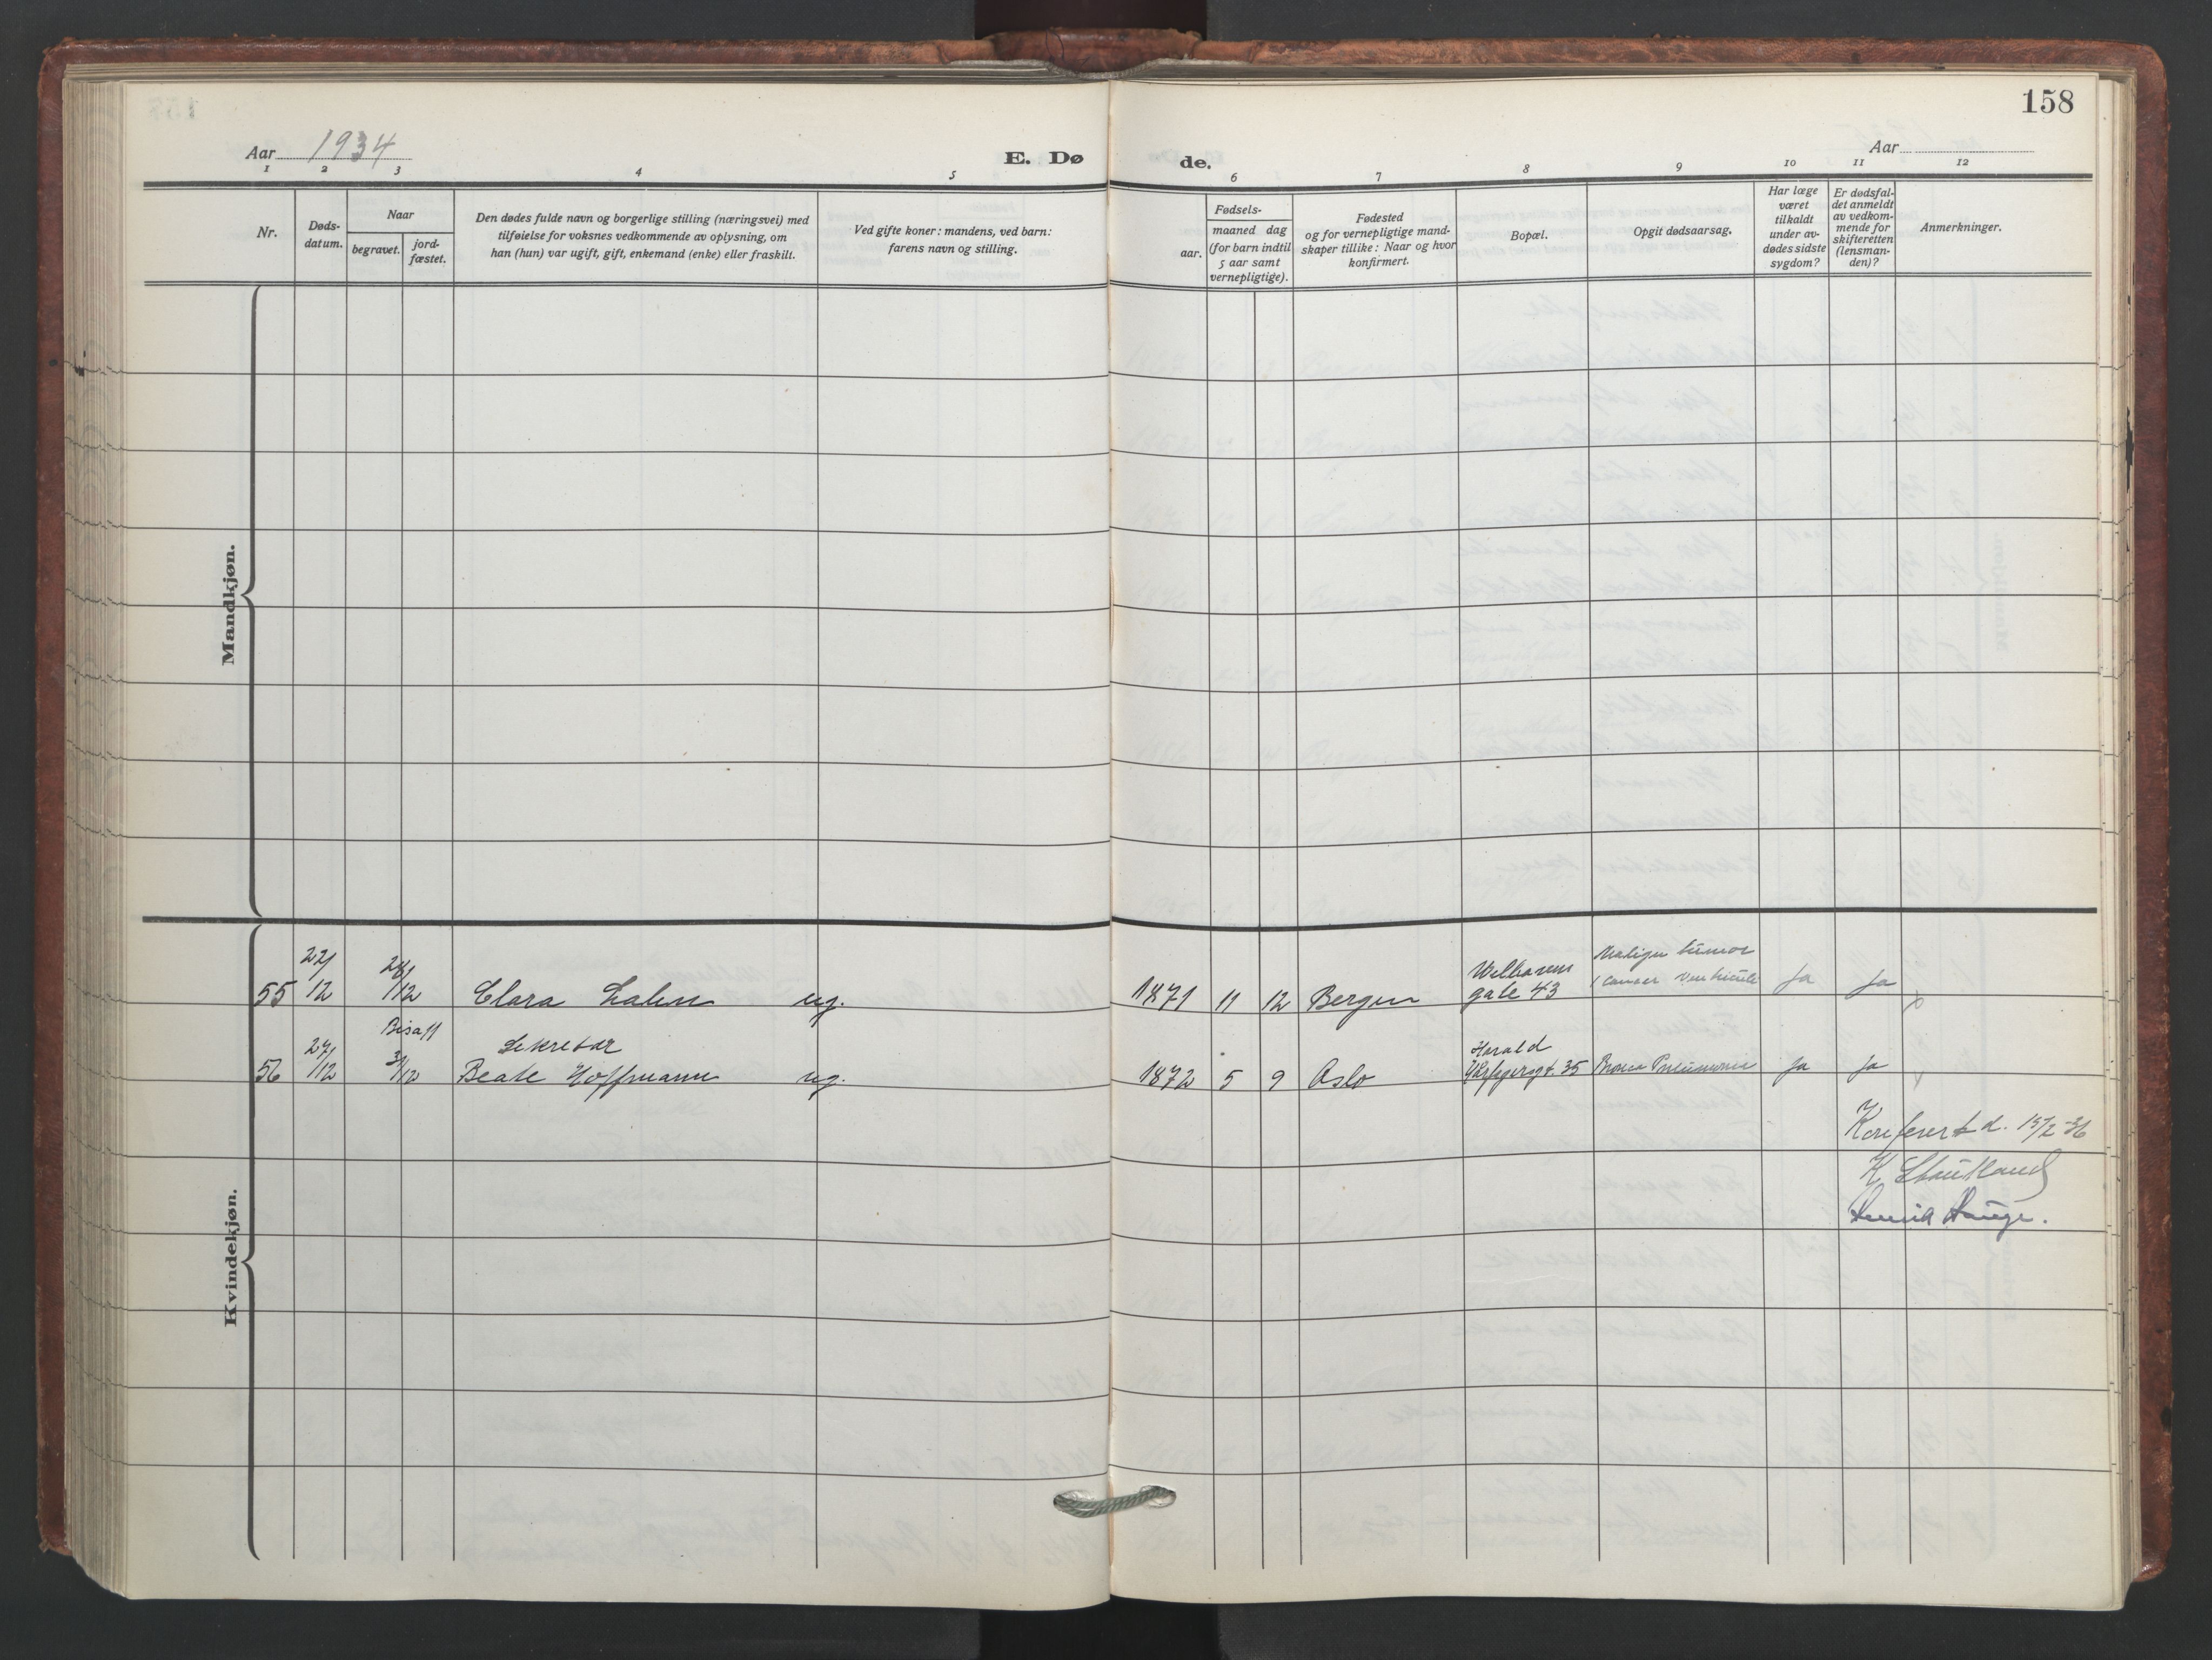 158
Aar 1934
E. Dø
de.
Aar
1 2 3 4 5 6 7 8 9 10 11 12
Nr.
Døds-
datum.
Naar
begravet.
jord-
fæstet.
Den dødes fulde navn og borgerlige stilling (næringsvei) med
tilføielse for voksnes vedkommende av oplysning, om
han (hun) var ugift, gift, enkemand (enke) eller fraskilt.
Ved gifte koner: mandens, ved barn:
farens navn og stilling.
aar.
Fødsels-
maaned dag
(for barn indtil
5 aar samt
vernepligtige).
Fødested
og for vernepligtige mand-
skaper tillike: Naar og hvor
konfirmert.
Bopæl.
Opgit dødsaarsag.
Har læge
været
tilkaldt
under av-
dødes sidste
sygdom?
Er dødsfal-
det anmeldt
av vedkom-
mende for
skifteretten
(lensman-
den)?
Anmerkninger.
Mandkjøn.
Kvindekjøn.
55
12
28/12
Clara
ug.
1871 11 12 Bergen
Welhavens
gate 43
Malign tumor
Ja Ja
56
27/12
Bisatt
31/12
Sekretær
Beate Hoffmann ug.
1872 5 9 Oslo
Harald
Hårfagersgt. 35
Pneumonie
Ja Ja
Konferert d. 15/2-36
Hauge.